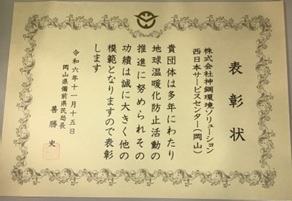 表彰状
株式会社神鋼環境ソリューション
西日本サービスセンター（岡山）
貴団体は多年にわたり
地球温暖化防止活動の
推進に努められその
功績は誠に大きく他の
模範となりますので表彰
します
令和六年十一月十五日
岡山県備前県民局長
善勝史